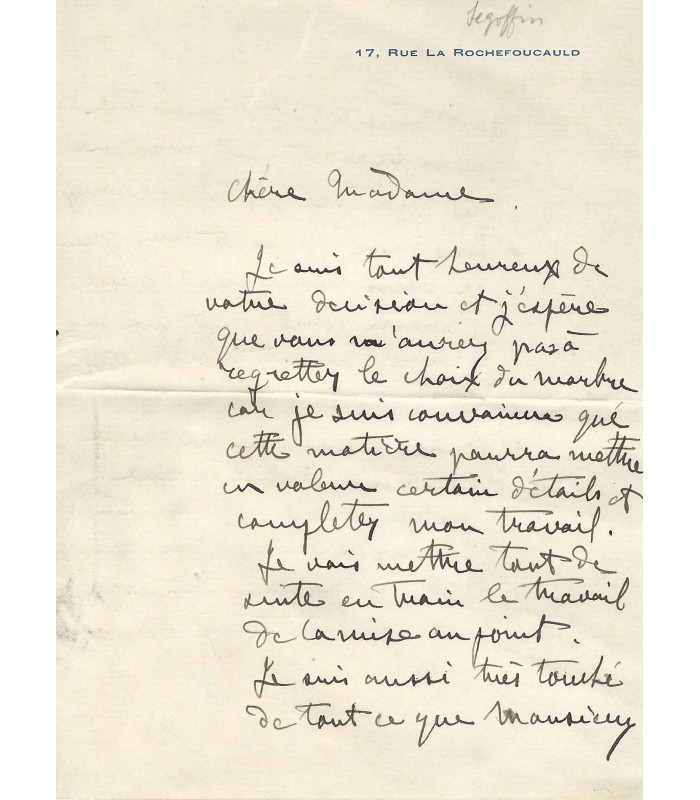 Segoffin
17, Rue La Rochefoucauld
Chère Madame.
Je suis tout heureux de
votre decision et j'espère
que vous n'aurez pas à
regretter le choix du marbre
car je suis convaincu que
cette matière pourra mettre
en valeur certain détails et
completer mon travail.
Je vais mettre tout de
suite en train le travail
de la mise au point.
Je suis aussi très touché
de tout ce que Monsieur